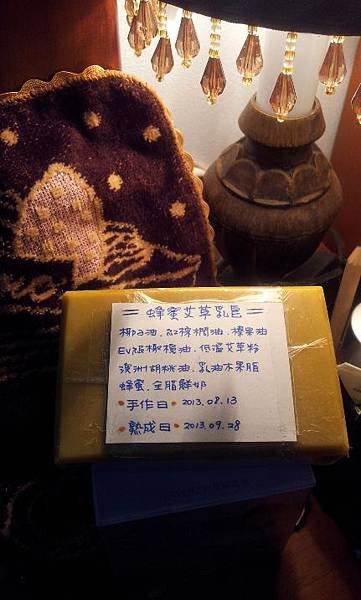 = 蜂蜜艾草乳皂 =
椰子油、紅棕櫚油、榛果油
EV級橄欖油、低溫艾草粉
澳洲胡桃油、乳油木果脂
蜂蜜、全脂鮮奶
•手作日•2013.08.13
•熟成日•2013.09.28